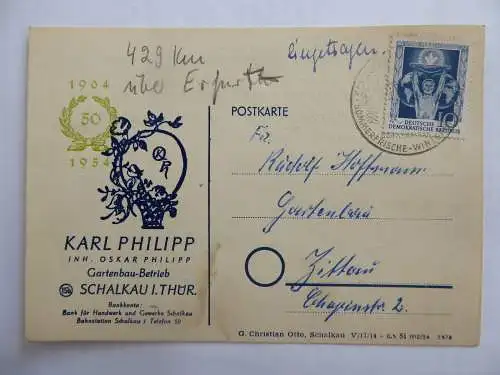 429 km
über Erfurt
eingetragen.
1904
50
1954
POSTKARTE
DEUTSCHE
DEMOKRATISCHE REPUBLIK
10
SOMMERFRISCHE-WINTER
Fa.
Rudolf Hoffmann
Gartenbau
Zittau
Chopinstr. 2.
KARL PHILIPP
INH. OSKAR PHILIPP
Gartenbau-Betrieb
SCHALKAU I. THÜR.
Bankkonto:
Bank für Handwerk und Gewerbe Schalkau
Bahnstation Schalkau / Telefon 50
G. Christian Otto, Schalkau V/11/14